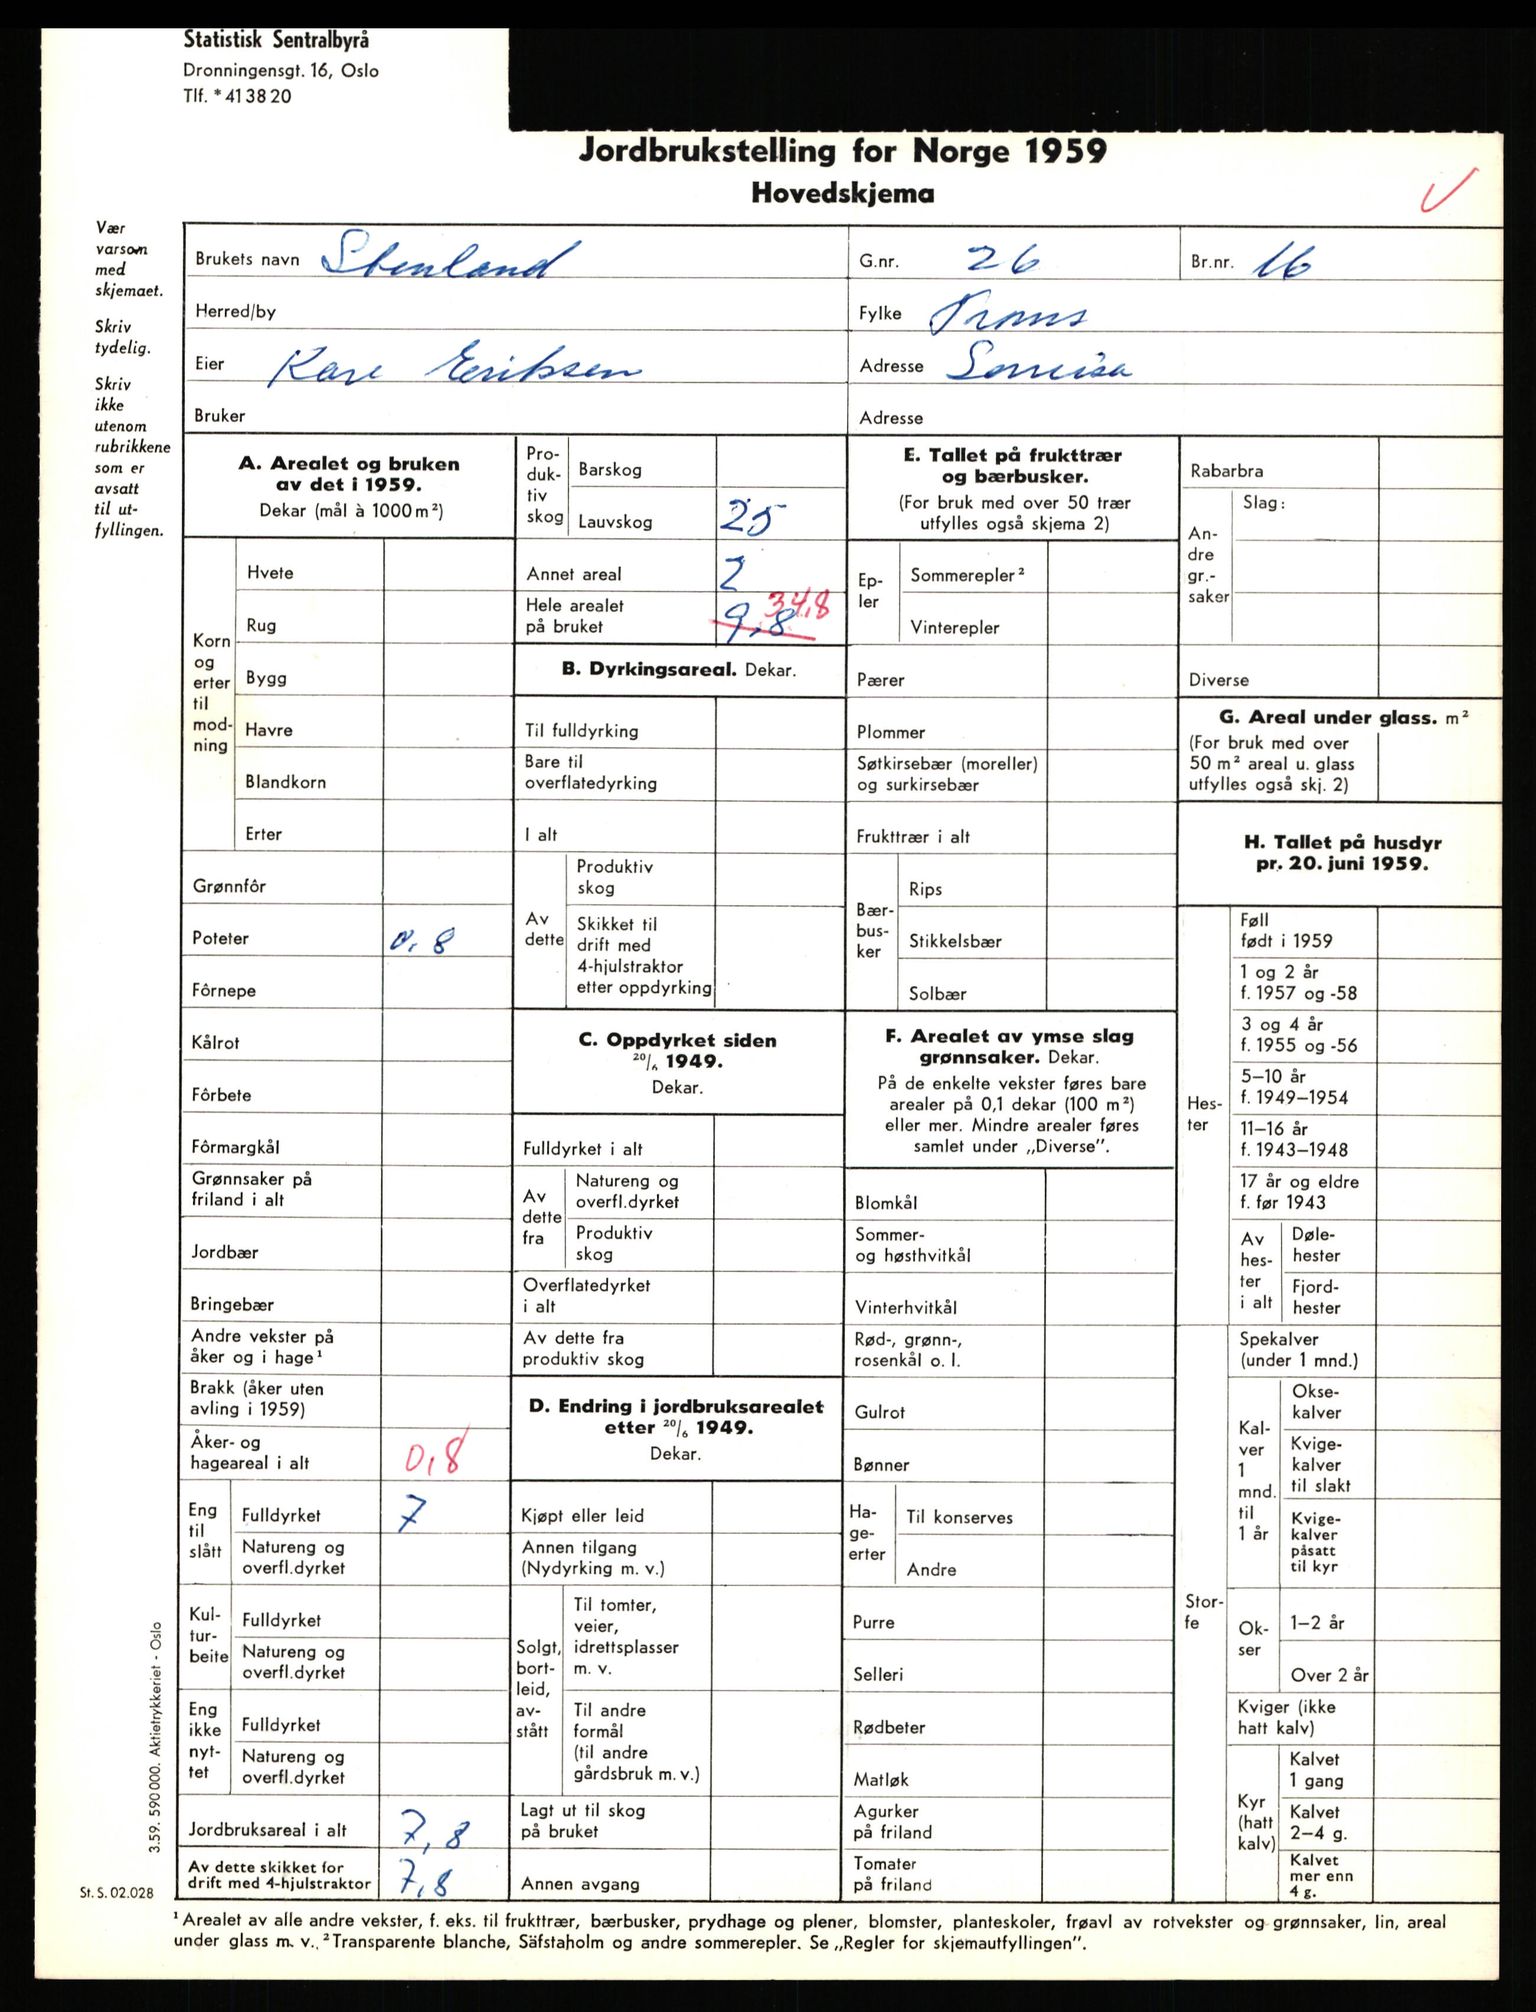 Statistisk Sentralbyrå
Dronningensgt. 16, Oslo
Tlf. * 41 38 20
Jordbrukstelling for Norge 1959
Hovedskjema
Vær
varsom
med
skjemaet.
Skriv
tydelig.
Skriv
ikke
utenom
rubrikkene
som er
avsatt
til ut-
fyllingen.
Brukets navn Stenland
G.nr. 26
Br.nr. 16
Herred/by
Fylke Troms
Eier Kare Eriksen
Adresse Sørreisa
Bruker
Adresse
A. Arealet og bruken
av det i 1959.
Dekar (mål à 1000 m²)
Korn
og
erter
til
mod-
ning
Hvete
Rug
Bygg
Havre
Blandkorn
Erter
Grønnfôr
Poteter 0,8
Fôrnepe
Kålrot
Fôrbete
Fôrmargkål
Grønnsaker på
friland i alt
Jordbær
Bringebær
Andre vekster på
åker og i hage¹
Brakk (åker uten
avling i 1959)
Åker- og
hageareal i alt 0,8
Eng
til
slått
Fulldyrket 7
Natureng og
overfl.dyrket
Kul-
tur-
beite
Fulldyrket
Natureng og
overfl.dyrket
Eng
ikke
nyt-
tet
Fulldyrket
Natureng og
overfl.dyrket
Jordbruksareal i alt 7,8
Av dette skikket for
drift med 4-hjulstraktor 7,8
Pro-
duk-
tiv
skog
Barskog
Lauvskog 25
Annet areal 2
Hele arealet
på bruket 9,8 34,8
B. Dyrkingsareal. Dekar.
Til fulldyrking
Bare til
overflatedyrking
I alt
Av
dette
Produktiv
skog
Skikket til
drift med
4-hjulstraktor
etter oppdyrking
C. Oppdyrket siden
20/6 1949.
Dekar.
Fulldyrket i alt
Av
dette
fra
Natureng og
overfl.dyrket
Produktiv
skog
Overflatedyrket
i alt
Av dette fra
produktiv skog
D. Endring i jordbruksarealet
etter 20/6 1949.
Dekar.
Kjøpt eller leid
Annen tilgang
(Nydyrking m. v.)
Solgt,
bort-
leid,
av-
stått
Til tomter,
veier,
idrettsplasser
m. v.
Til andre
formål
(til andre
gårdsbruk m. v.)
Lagt ut til skog
på bruket
Annen avgang
E. Tallet på frukttrær
og bærbusker.
(For bruk med over 50 trær
utfylles også skjema 2)
Ep-
ler
Sommerepler²
Vinterepler
Pærer
Plommer
Søtkirsebær (moreller)
og surkirsebær
Frukttrær i alt
Bær-
bus-
ker
Rips
Stikkelsbær
Solbær
F. Arealet av ymse slag
grønnsaker. Dekar.
På de enkelte vekster føres bare
arealer på 0,1 dekar (100 m²)
eller mer. Mindre arealer føres
samlet under „Diverse”.
Blomkål
Sommer-
og høsthvitkål
Vinterhvitkål
Rød-, grønn-,
rosenkål o. l.
Gulrot
Bønner
Ha-
ge-
erter
Til konserves
Andre
Purre
Selleri
Rødbeter
Matløk
Agurker
på friland
Tomater
på friland
Rabarbra
An-
dre
gr.-
saker
Slag:
Diverse
G. Areal under glass. m²
(For bruk med over
50 m² areal u. glass
utfylles også skj. 2)
H. Tallet på husdyr
pr. 20. juni 1959.
Hes-
ter
Føll
født i 1959
1 og 2 år
f. 1957 og -58
3 og 4 år
f. 1955 og -56
5–10 år
f. 1949–1954
11–16 år
f. 1943–1948
17 år og eldre
f. før 1943
Av
hes-
ter
i alt
Døle-
hester
Fjord-
hester
Stor-
fe
Spekalver
(under 1 mnd.)
Kal-
ver
1
mnd.
til
1 år
Okse-
kalver
Kvige-
kalver
til slakt
Kvige-
kalver
påsatt
til kyr
Ok-
ser
1–2 år
Over 2 år
Kviger (ikke
hatt kalv)
Kyr
(hatt
kalv)
Kalvet
1 gang
Kalvet
2–4 g.
Kalvet
mer enn
4 g.
3.59. 590 000. Aktietrykkeriet - Oslo
St. S. 02.028
¹ Arealet av alle andre vekster, f. eks. til frukttrær, bærbusker, prydhage og plener, blomster, planteskoler, frøavl av rotvekster og grønnsaker, lin, areal
under glass m. v. ² Transparente blanche, Säfstaholm og andre sommerepler. Se „Regler for skjemautfyllingen”.